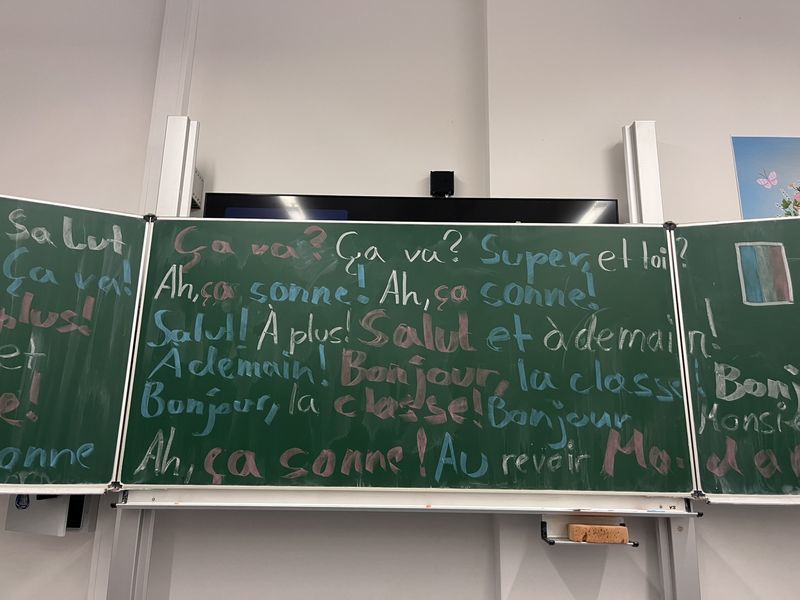 Salut
Ça va!
plus!
et
e!
onne
Ça va? Ça va? Super, et toi?
Ah, ça sonne! Ah, ça sonne!
Salut! À plus! Salut et à demain!
À demain! Bonjour, la classe!
Bonjour, la classe! Bonjour
Ah, ça sonne! Au revoir Madam
Bonj
Monsie